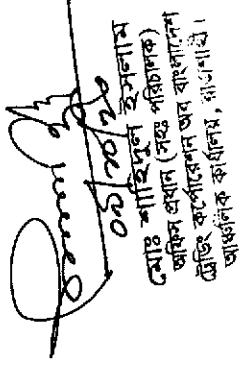 ০৬/০৮/২০
মোঃ শাহিদুল ইসলাম
অফিস প্রধান (সহঃ পরিচালক)
ট্রেডিং কর্পোরেশন অব বাংলাদেশ
আঞ্চলিক কার্যালয়, রাজশাহী।